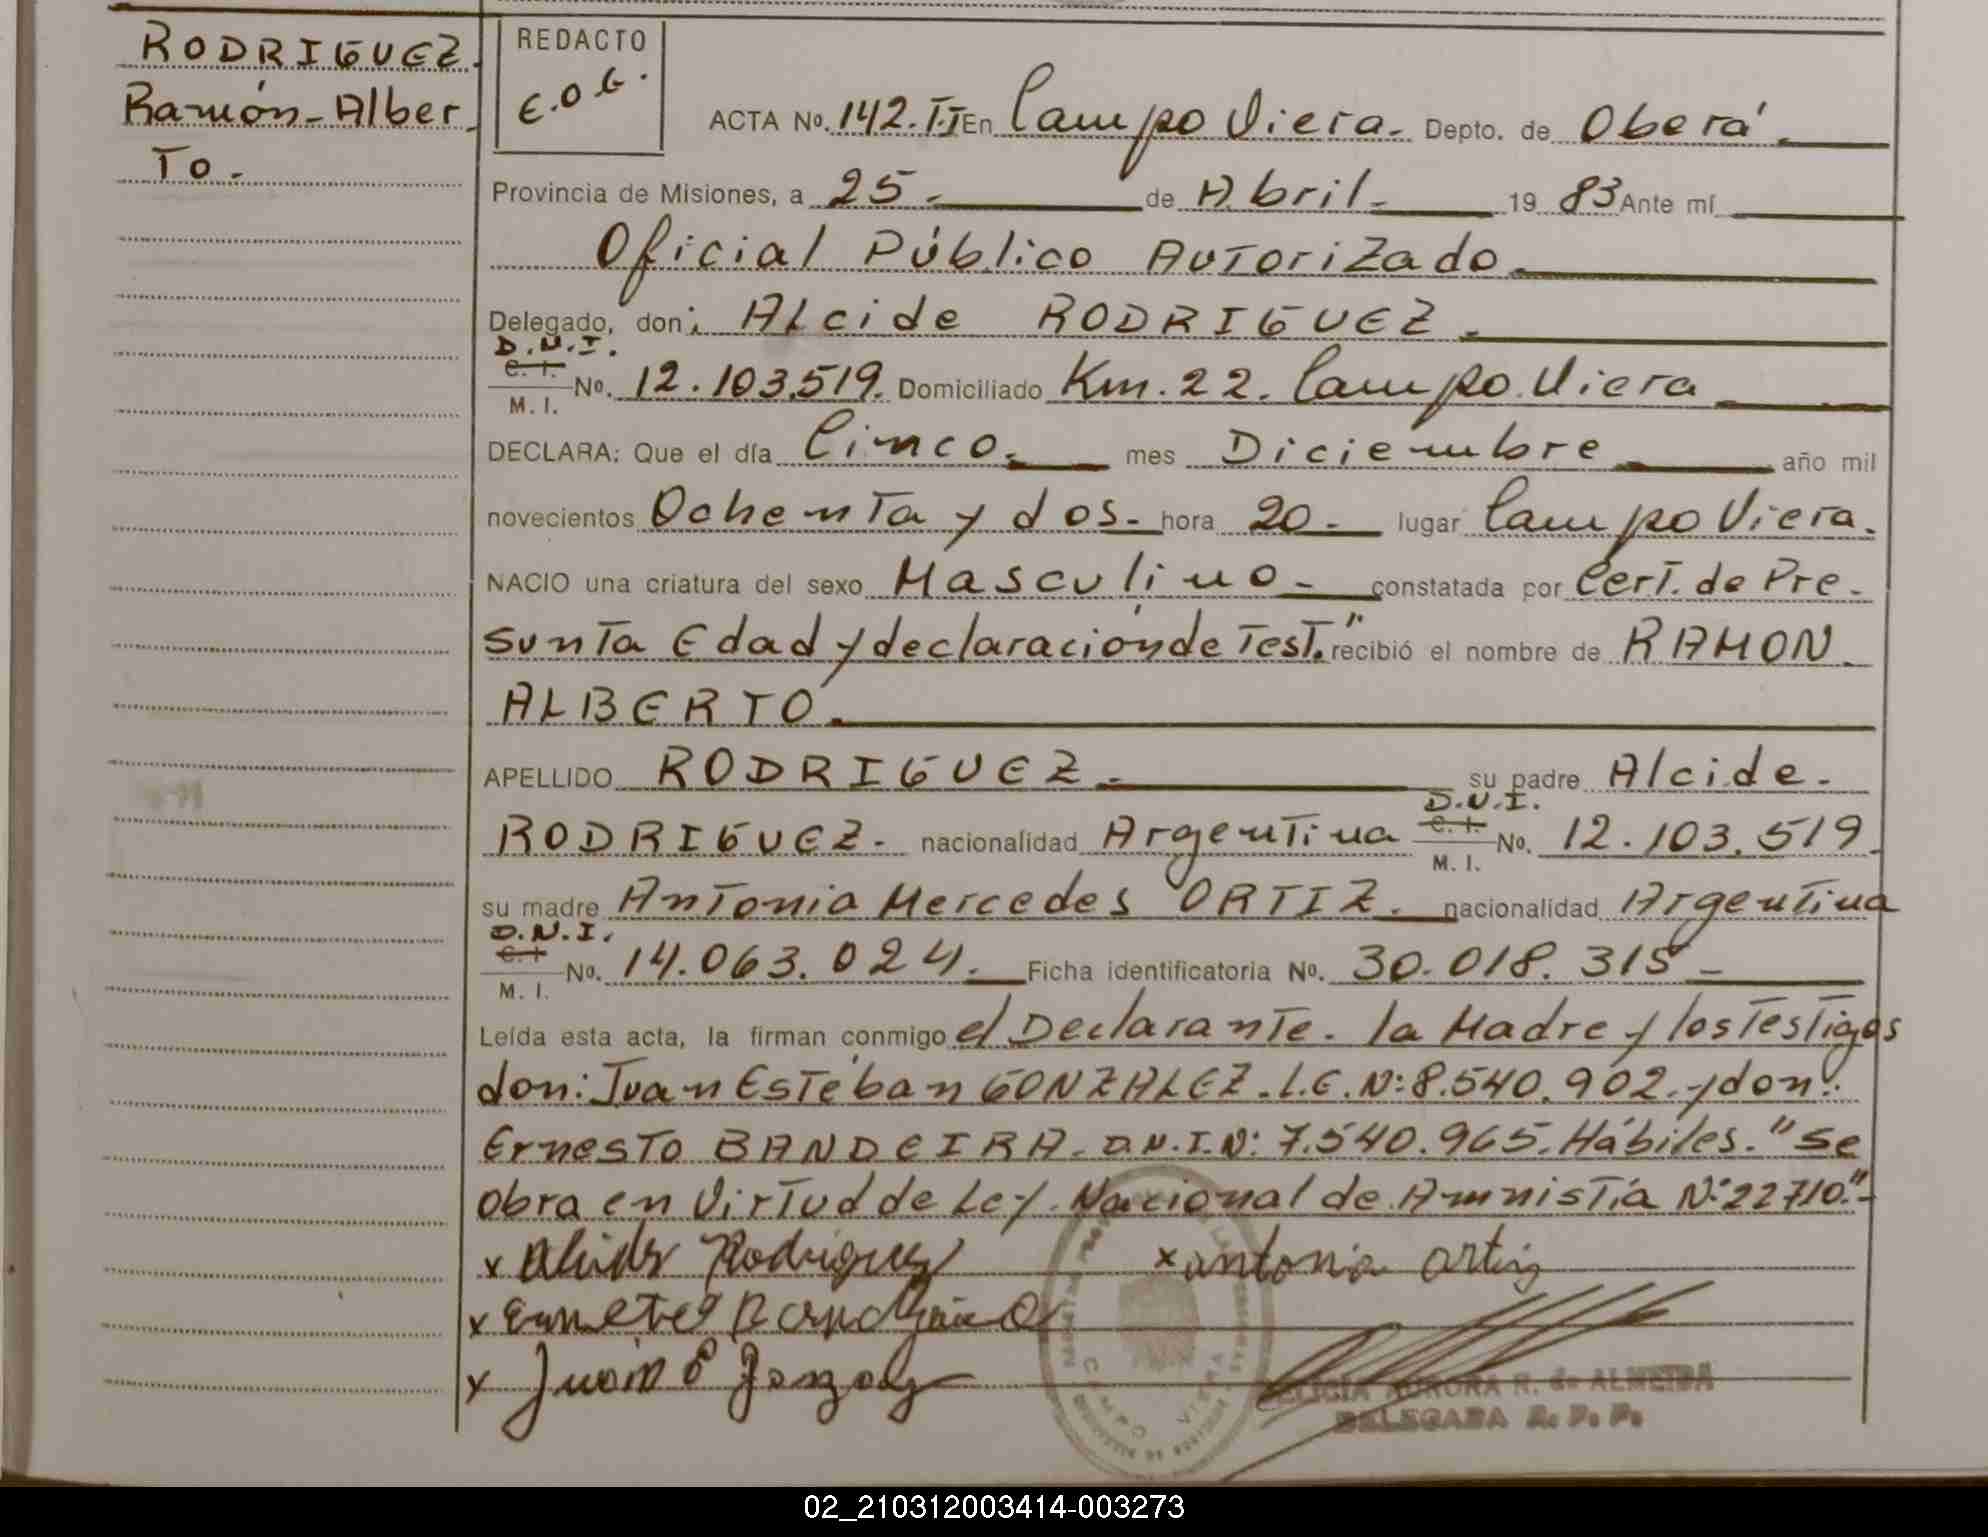 RODRIGUEZ.
Ramón-Alber
To.
REDACTO
E.O.G.
ACTA No. 142. T.I En Campo Viera. Depto. de Oberá.
Provincia de Misiones, a 25. de Abril. 19 83 Ante mí
Oficial Público Autorizado.
Delegado, don: Alcide RODRIGUEZ.
D.N.I.
C. I.
M. I.
No. 12.103.519. Domiciliado Km. 22. Campo Viera
DECLARA: Que el día Cinco. mes Diciembre año mil
novecientos Ochenta y dos. hora 20. lugar Campo Viera.
NACIO una criatura del sexo Masculino constatada por Cert. de Pre-
sunta Edad y declaración de Test." recibió el nombre de RAMON
ALBERTO.
APELLIDO RODRIGUEZ. su padre Alcide.
RODRIGUEZ. nacionalidad Argentina
D.N.I.
C. I.
M. I.
No. 12.103.519.
su madre Antonia Mercedes ORTIZ. nacionalidad Argentina
D.N.I.
C. I
M. I.
No. 14.063.024. Ficha identificatoria No. 30.018.315
Leída esta acta, la firman conmigo el Declarante. la Madre y los Testigos
don: Juan Esteban GONZALEZ. L.E. N: 8.540.902. y don:
Ernesto BANDEIRA. D.N.I. N: 7.540.965. Hábiles. "Se
obra en Virtud de Ley Nacional de Amnistía N: 22710."
x Alcide Rodriguez
x antonia ortiz
x
x Juan E Gonzalez
CAMPO VIERA
AURORA R. de ALMEIDA
DELEGADA R. P. P.
02_210312003414-003273